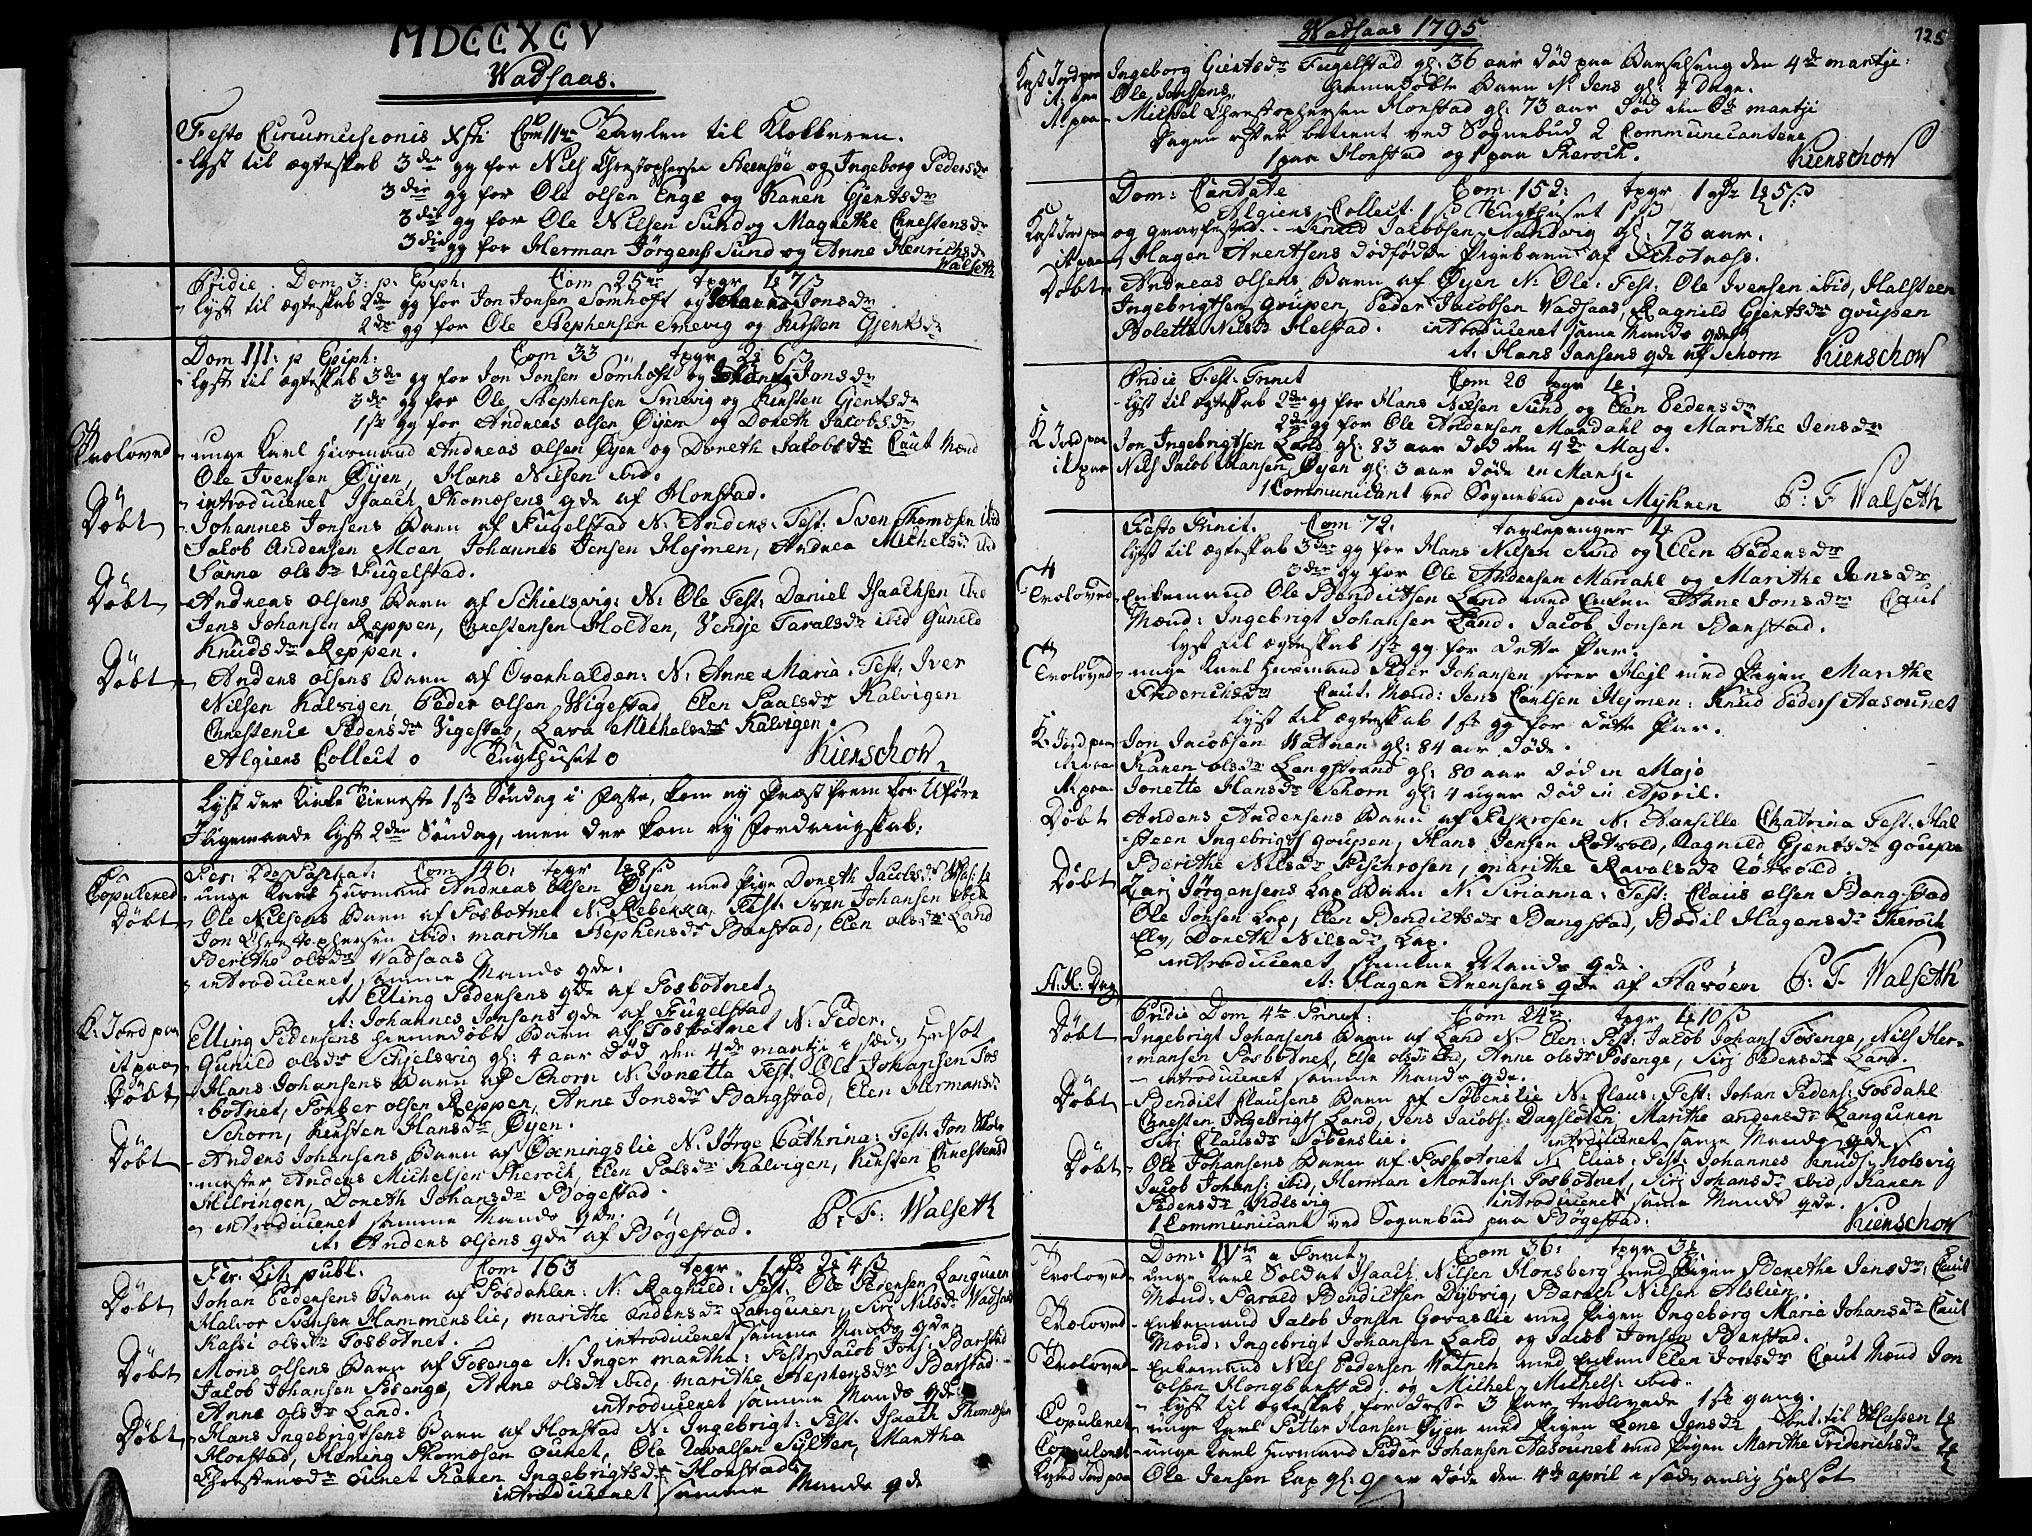 MDCCXCV
Wadsaas.
Festo Circumcisionis Xsti Com 11 Tavlen til Klokkeren.
lyst til ægteskab 3die gg for Nils Christophersen og Ingeborg Pedersdr
3die gg for Ole olsen Enge og Karen Gjertsdr
3die gg for Ole Nilsen Sund og Magrethe Christensdr
3die gg for Herman Jørgens Sund og Anne Henrichsdr
Walseth
Pridie Dom 3: p. Epiph: Com 25 tpgr 1 7ß
lyst til ægteskab 2den gg for Jon Jonsen Sömhoft og Johanna Jonsdr
2den gg for Ole Stephensen Smevig og Kirsten Gjertsdr
Dom III: p Epiph: Com 33 tpgr 2 6ß
lyst til ægteskab 3die gg for Jon Jonsen Sömhoft og Jonsdr
3die gg for Ole Stephensen Smevig og Kirsten Gjertsdr
1ste gg for Andreas olsen Øyen og Doreth Jacobsdr
Troloved unge Karl Andreas olsen Øyen og Doreth Jacobsdr Caut Mænd
Ole Iversen Øyen, Hans Nilsen ibid.
introduceret Isaach Thomæsens qde af Horstad.
Døbt Johannes Jonsens Barn af Fugelstad N: Anders. Test: Sven Thomæsen ibid
Jacob Andersen Moen Johannes Jensen Hejmen, Andrea Michelsdr ibid
Sanna olsdr Fugelstad.
Døbt Andreas olsens Barn af Schielsvig: N: Ole Test: Daniel Isaachsen ibid
Jens Johansen Reppen, Christensen Holden, Vendje Taralsdr ibid Gunild
Knudsdr Reppen.
Døbt Anders olsens Barn af Overhalden: N: Anne Maria. Test: Iver
Nilsen Kalvigen Peder olsen Wigestad Elen Paalsdr Kalvigen
Christence Pedersdr Vigestad, Lava Michelsdr Kalvigen.
Algiers Collect 0 Tugthuset 0 Kierschow
Lyst der Kirke Tieneste 1ste Søndag i Faste, kom ey Præst frem for Uføre
Ligemaade lyst 2den Søndag, men der kom ey
Fer: 2da Paschat: Com 146: tpgr 1 8ß
Copulered unge Karl Andreas olsen Øyen med Pige Doreth Jacobsdr
Døbt Ole Nilsens Barn af Fosbotnet N: Rebekka, Test: Sven Johansen ibid
Jon Christophersen ibid: marithe Stephensdr Barstad, Elen olsdr Land
Berithe olsdr Wadsaas
introduceret samme Mands qde.
It Elling Pedersens qde af Fosbotnet.
It: Johannes Jonsens qde af Fugelstad
K: Jord paa Elling Pedersens hiemmedøbt Barn af Fosbotnet N: Peder.
it paa Gunild olsdr Schjelsvig gl: 4 aar død den 4de martji
Døbt Hans Johansens Barn af Schorn N: Jonetta Test: Ole Johansen Fos
botnet, Torber olsen Reppen, Anne Jonsdr Bangstad, Elen Hermansdr
Schorn, Kirsten Hansdr Øyen.
Døbt Anders Johansens Barn af N: Jørge Cathrina: Test: Jon Skole
mester Anders Michelsen Theroch, Elen Polsdr Kalvigen, Kirsten
Doreth Johansdr Bøgestad.
introduceret samme Mands qde.
it Anders olsens qde af Bøgestad. P: F: Walseth
Fer: Lit: publ: Com 163 tpgr 1 2 4ß
Døbt Johan Pedersens Barn af Fosdahlen: N: Ragnild: Test: Ole Langvæen
Halvor Hammerslie, marithe andersdr Langvæen, Siri Nilsdr Wadsaas
Kassi olsdr Fosbotnet. introduceret samme Mands qde
Døbt Mons olsens Barn af Fosenge N: Inger martha: Test: Jacob Jons: Barstad
Jacob Johansen Fosenge, Anne olsdr ibid, marithe Stephensdr Barstad
Anne olsdr Land. introduceret samme Mands qde
Døbt Hans Ingebrigtsens Barn af Horstad N: Ingebrigt: Test: Isaach Thomæsen
Horstad, Haming Thomæsen ounet, Ole Zavalsen Sylten, Martha
Christensdr ounet Karen Ingebrigtsdr Horstad.
introduceret samme Mands qde
Wadsaas 1795
125
Kast Jord paa Ingeborg Giertsdr Fugelstad gl: 36 aar død paa Barselseng den 4de martji:
it: paa Ole Jonsens hiemmedøbte Barn N: Jens gl: 4 Dage.
it paa Michel Christophersen Horstad gl: 73 aar død den martji
Dagen efter betient ved Sognebud 2 Communicantere
1 paa Horstad og 1 paa Theroch. Kierschow
Dom: Cantate Com 152: tpgr 1 1 5ß
Algiers Collect Tugthuset
Kast Jord paa og gravfæsted Knud Jacobsen Sandvig gl: 73 aar.
it paa Hagen Arentsens dødfødde Pigebarn af Schotnæss.
Døbt Andreas olsens Barn af Øyen N: Ole: Test: Ole Iversen ibid, Halsteen
Ingebrigtsen grupen, Peder Jacobsen Vadsaas, Ragnild Gjertsdr grupen
Bolette Nilsdr Helstad. introduceret same Mands qde
it: Hans Jansens qde af Schorn Kierschow
Pridie Fest: Trinit Com 26 tpgr
lyst til ægteskab 2den gg for Hans Nilsen Sund og Elen Pedersdr
2den gg for Ole Andersen Mardahl og Marithe Jensdr
K: Jord paa Jon Ingebrigtsen Land gl: 83 aar død den 4de Maji.
it paa Nils Jacob Hansen Øyen gl: 3 aar døde in Martji
1 Communicant ved Sognebud paa Myhren P: F Walseth
Festo Trinit. Com 72. tavlepenger
lyst til ægteskab 3die gg for Hans Nilsen Sund og Elen Pedersdr
3die gg for Ole Andersen Mardahl og Marithe Jensdr
Troloved Enkemand Ole Bendictsen Land med Enken Anne Jonsdr Caut
Mænd: Ingebrigt Johansen Land. Jacob Jonsen Barstad.
lyst til ægteskab 1ste gg for dette Par.
Troloved unge Karl Peder Johansen med Pigen Marithe
Friderichsdr Caut: Mænd: Jens Carlsen Hejmen: Knud Peders Aasounet
lyst til ægteskab 1ste gg for dette Par.
K: Jord paa Jon Jacobsen Watnen gl: 84 aar døde.
it paa Karen olsdr Langstrand gl: 80 aar død in Majo
it: paa Jonette Hansdr Schorn gl: 4 uger død in April.
Døbt Anders Andersens Barn af Fiskrosen N: Chatrina Test: Hal
steen Ingebrigts grupen, Hans Jensen Røtvold, Ragnild Gjertsdr grupen
Berithe Nilsdr Fischrosen, marithe Ravalsdr Røtvold.
Døbt Zari Jørgensens Lap Barn N: Sirianna: Test: Claus olsen Bangstad
Ole Jonsen Lap, Elen Bendictsdr Bangstad, Bodil Hagensdr Theroch
Elv, Doreth Nilsdr Lap.
introduceret samme Mands qde.
it: Hagen Arensens qde af Harøen P: F: Walseth
Pridie Dom 4te Trinit: Com 24 tpgr 1 10ß
Døbt Ingebrigt Johansens Barn af Land N: Elen: Test: Jacob Johans Fosenge, Nils Her-
mansen Fosbotnet, Else olsdr ibid, Anne olsdr Fosenge, Siri Pedersdr Land.
introduceret samme Mands qde.
Døbt Bendict Clausens Barn af N: Claus: Test: Johan Peders: Fosdahl
Christen Ingebrigts Land, Jens Jacobs: Marithe andersdr Langvæen
Siri Clausdr introduceret same Mands qde
Døbt Ole Johansens Barn af Fosbotnet N: Elias: Test: Johannes Knuds: Holsvig
Jacob Johans: ibid, Herman Mortens: Fosbotnet, Siri Johansdr ibid, Karen
Pedersdr Holsvig introduceret same Mands qde.
1 Communicant ved Sognebud paa Bøgestad. Kierschow
Dom: IVta a Trinit Com 36: tpgr 3
Trolovede unge Karl Soldat Isaach Nilsen Horsberg med Pigen Berethe Jensdr: Caut
Mænd: Parald Bendictsen Dybvig, Baroch Nilsen Alslien.
Trolovede Enkemand Jacob Jonsen Govaslie med Pigen Ingeborg Maria Johansdr Caut
Mænd: Ingebrigt Johansen Land og Jacob Jonsen Barstad.
Trolovede Enkemand Nils Pedersen Watnen med Enken Elen Jonsdr Caut Mænd Jon
olsen Hongbarstad, og Michel Michels: ibid.
lyst til ægteskab for disse 3 Par trolovede 1ste gang.
Copuleret unge Karl Petter Hansen Øyen med Pigen Lene Jensdr
Copuleret unge Karl Peder Johansen Aasounet med Pigen Marithe Friderichsdr
Kasted Jord paa Ole Jensen Lap gl: aar døde den 4de april